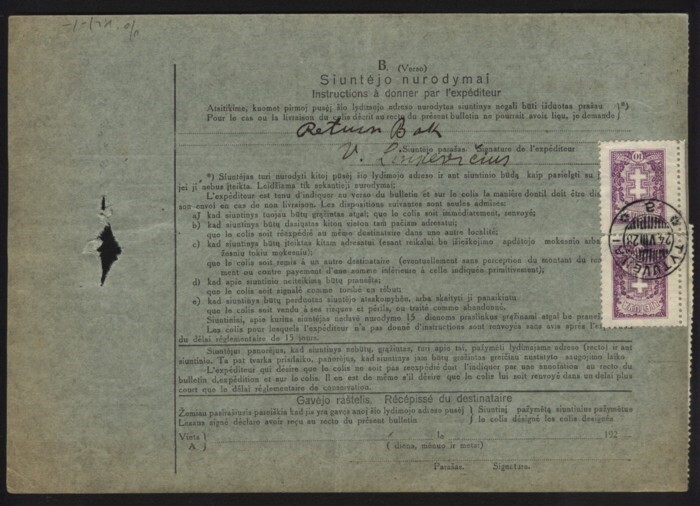 B. (Verso)
Siuntėjo nurodymai
Instructions à donner par l'expéditeur
Atsitikime, kuomet pirmoj pusėj šio lydimojo adreso nurodytas siuntinys negali būti išduotas prašau }*)
Pour le cas ou la livraison du colis décrit au recto du présent bulletin ne pourrait avois liqu, je demande
Return Bak
V. Linkevičius
Siuntėjo parašas Signature de l'expéditeur
*) Siuntėjas turi nurodyti kitoj pusėj šio lydimojo adreso ir ant siuntinio būdą kaip pasielgti su
jei ji nebus įteikta. Leidžiama tik sekantieji nurodymai:
L'expéditeur est tenu d'indiquer au verso du bulletin et sur le colis la manière dontil doit être
son envoi en cas de non livraison. Les dispositions suivantes sont seules admises:
a) kad siuntinys tuojau būtų grąžintas atgal; que le colis soit immédiatement, renvoyé;
b) kad siuntinys būtų dasiųstas kiton vieton tam pačiam adresatui;
que le colis soit réexpédié au même destinataire dans une autre localité;
c) kad siuntinys būtų įteiktas kitam adresatui (esant reikalui be išieškojimo apdėtojo mokesnia arba
žesniu tokiu mokesniu);
que le colis soit remis à un autre destinataire (eventuellement sans perception du montant du
ment ou contre payement d'une somme inférieure à celle indiquée primitivement);
d) kad apie siuntinio neiteikimą būtų pranešta;
que le colis soit signalé comme tombé en rébut;
e) kad siuntinys būtų perduotas siuntėjo atsakomybėn, arba skaityti ji panaistutu
que le colis soit rendu à ses risques et périls, ou traité comme abandonné.
Siuntiniai, apie kurius siuntėjas nedavė nurodymo 15 dienoms praslinkus grąžinami atgal be
Les colis pour lesquels l'expéditeur n'a pas donné d'instructions sont renvoyés sans avis après
du délai réglementaire de 15 jours.
Siuntėjui panorėjus, kad siuntinys nebūtų, grąžintas, turi apie tai, pažymėti lydimajame adrese (recto) ir ant
siuntinio. Ta pat tvarka prisilaiko, panorėjus, kad siuntinys jum būtų grąžintas greičiau nustatyto saugojimo laiko.
L'expéditeur qui désire que le colis ne soit pas reexpédié doit l'indiquer par une annotation au recto du
bulletin d'expédition et sur le colis. Il en est de même s'il désire que le colis lui soit renvoyé dans un delai plus
court que le délai réglementaire de conservation.
Gavėjo raštelis. Récépissé du destinataire
Žemiau pasirašusis pareiškia kad jis yra gavęs ano šio lydimojo adreso pusėj } Siuntinį pažymėtą siuntinius pažymėtus
Lsauss signé déclare avoir reçu au recto du présent bulletin le colis désigné les colis designés
Vieta } le 192
A ) (diena, mėnuo ir metai)
Parašas. Signature.
TYTUVĖNAI
24 VIII 28